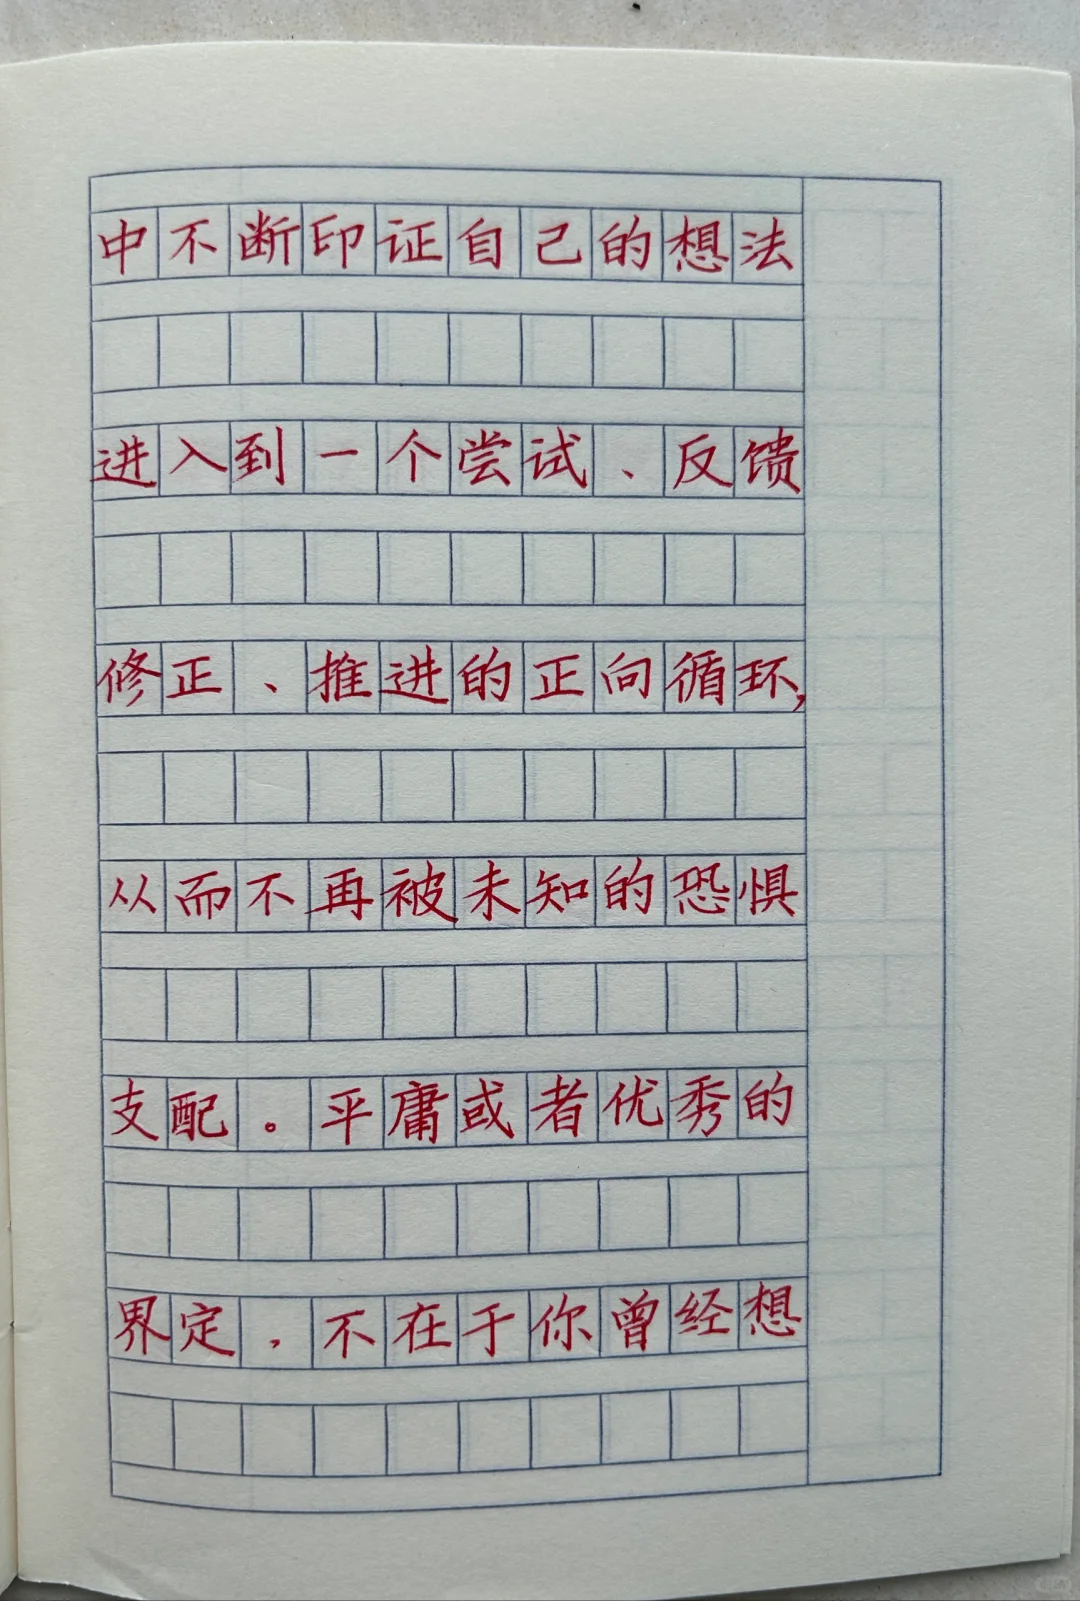 中不断印证自己的想法
进入到一个尝试、反馈
修正、推进的正向循环,
从而不再被未知的恐惧
支配。平庸或者优秀的
界定，不在于你曾经想